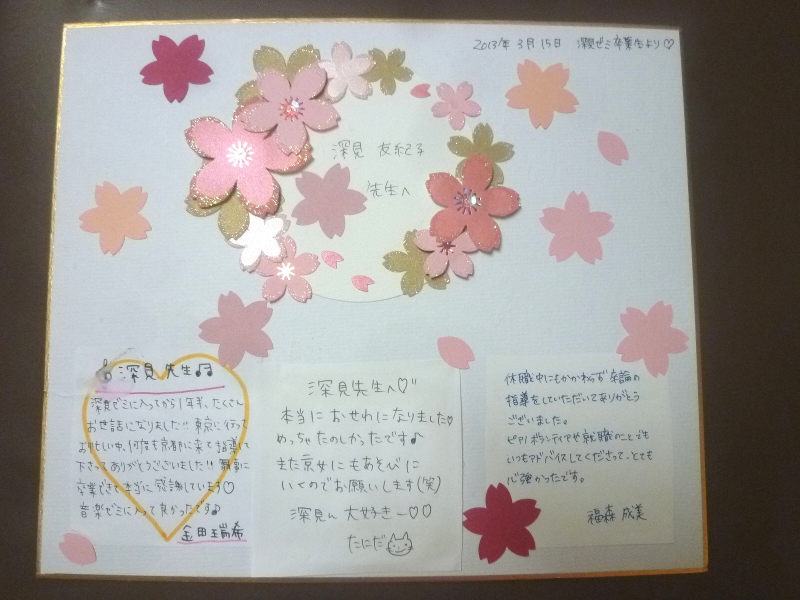 2013年 3月 15日 深見ゼミ卒業生より♡
深見 友紀子
先生へ
深見先生♫
深見ゼミに入ってから1年半、たくさん
お世話になりました!! 東京に行って
お忙しい中、何度も京都に来て指導して
下さってありがとうございました!! 無事に
卒業できて本当に感謝しています♡
音楽ゼミに入って良かったです♪
金田瑞希
深見先生へ♡
本当におせわになりました♡
めっちゃたのしかったです♪
また京女にもあそびに
いくのでお願いします(笑)
深見ん 大好きー♡♡
たにだ
休職中にもかかわらず 卒論の
指導をしていただいてありがとう
ございました。
ピアノボランティアや就職のことでも
いつもアドバイスしてくださって、とても
心強かったです。
福森 成美